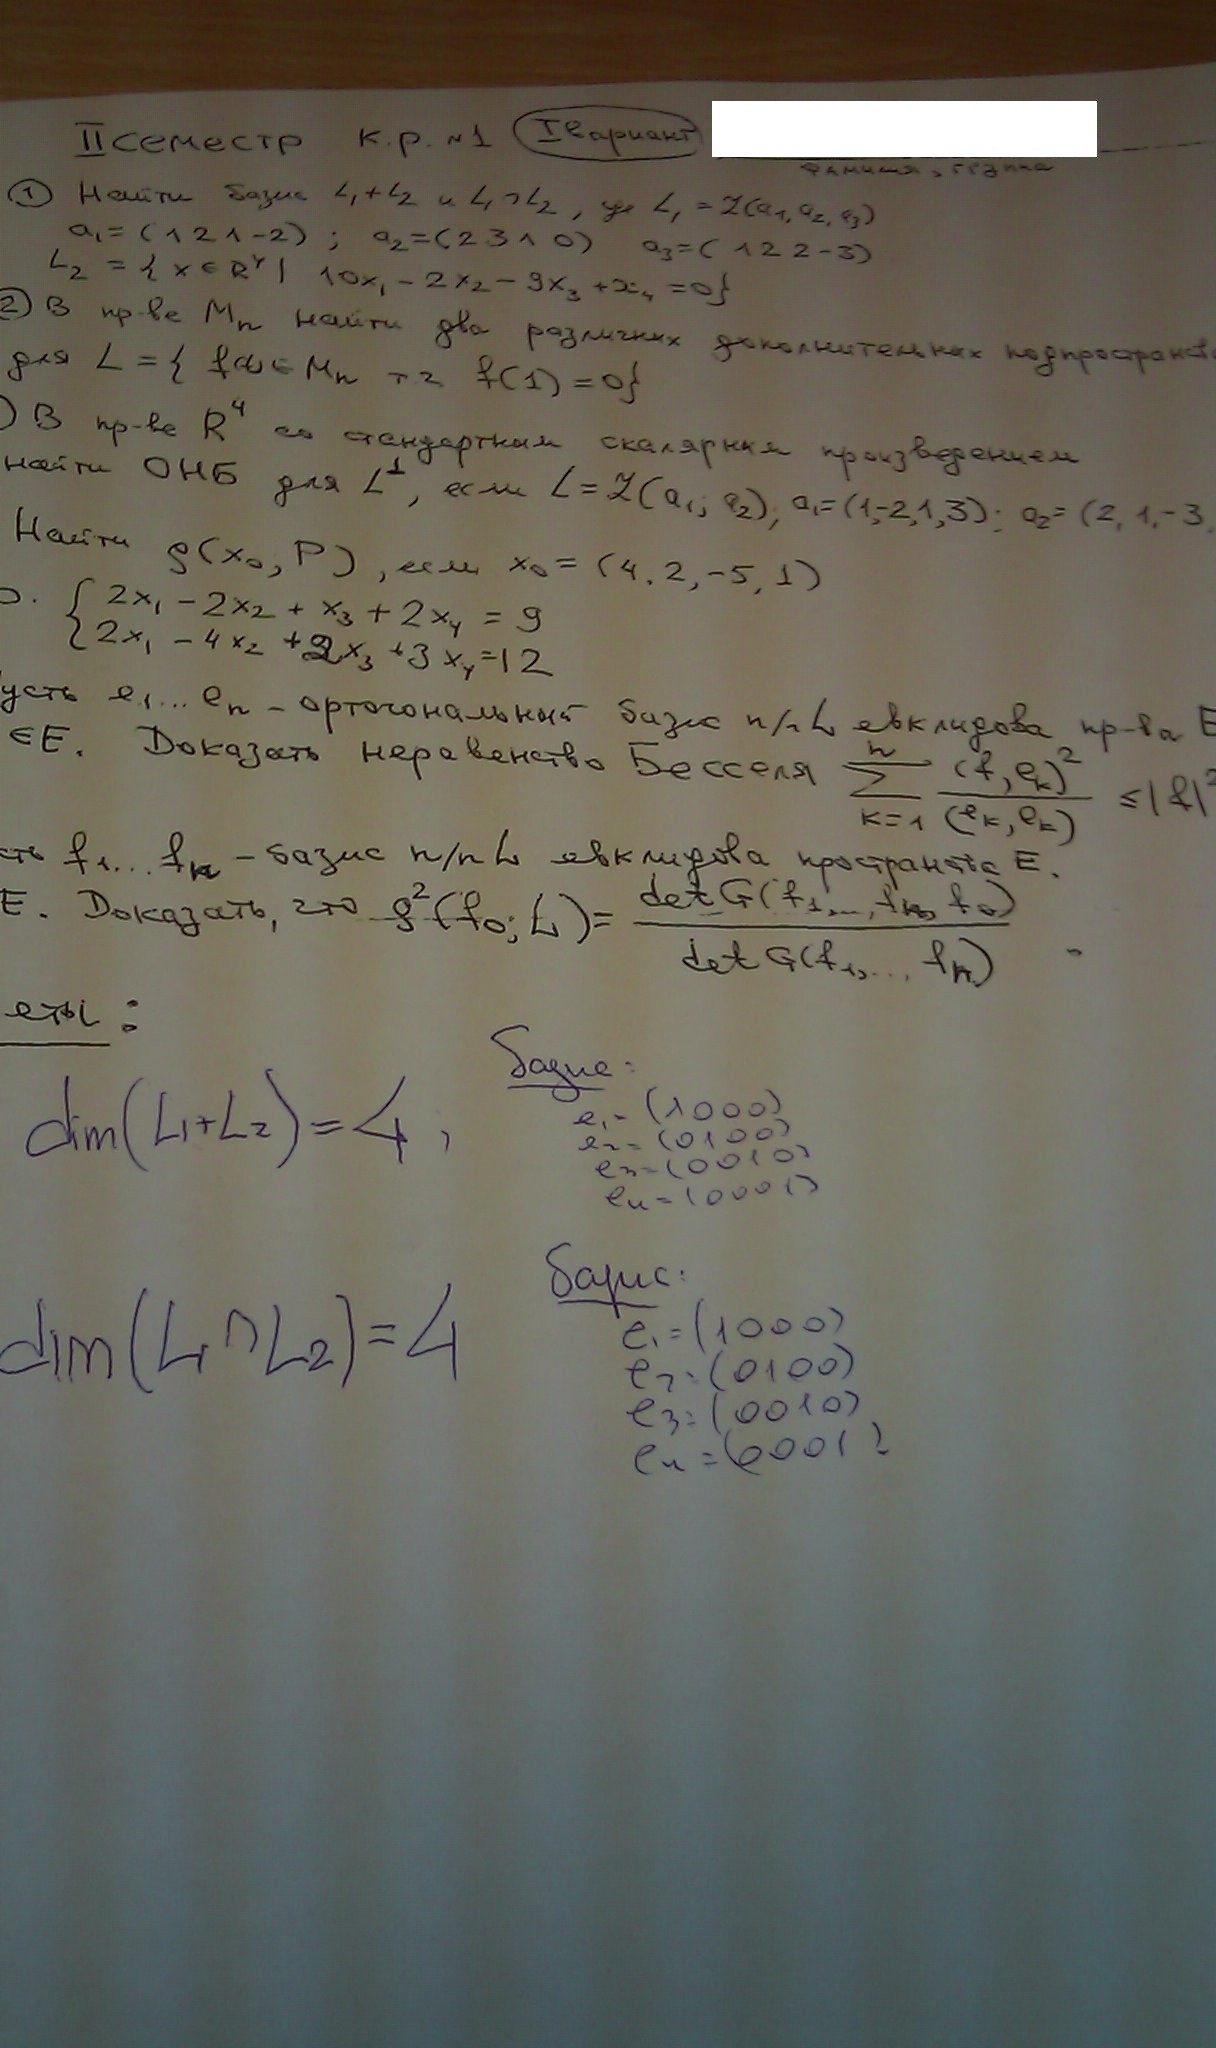 II семестр к.р. №1 I вариант
фамилия, группа
① Найти базис L₁+L₂ и L₁∩L₂, где L₁ = ℒ(a₁, a₂, a₃)
a₁=(1 2 1 -2); a₂=(2 3 1 0) a₃=(1 2 2 -3)
L₂ = {x ∈ R⁴ | 10x₁ - 2x₂ - 9x₃ + x₄ = 0}
② В пр-ве Mₙ найти два различных дополнительных подпространств
для L = { f(x) ∈ Mₙ тг f(1) = 0}
) В пр-ве R⁴ со стандартным скалярным произведением
найти ОНБ для L⊥, если L = ℒ(a₁; a₂), a₁=(1,-2,1,3); a₂=(2,1,-3,
Найти ρ(x₀, P), если x₀ = (4, 2, -5, 1)
{ 2x₁ - 2x₂ + x₃ + 2x₄ = 9
2x₁ - 4x₂ + 2x₃ + 3x₄ = 12
усть e₁...eₙ - ортогональный базис п/п L евклидова пр-ва E
∈E. Доказать неравенство Бесселя ∑ₖ₌₁ⁿ (f, eₖ)²/(eₖ, eₖ) ≤ |f|²
сть f₁...fₙ - базис п/п L евклидова пространства E.
E. Доказать, что ρ²(f₀; L) = det G(f₁,...,fₙ, f₀)/det G(f₁,..., fₙ)
еты:
dim(L₁+L₂)=4, Базис:
e₁=(1000)
e₂=(0100)
e₃=(0010)
e₄=(0001)
dim(L₁∩L₂)=4 Базис:
e₁=(1000)
e₂=(0100)
e₃=(0010)
e₄=(0001)